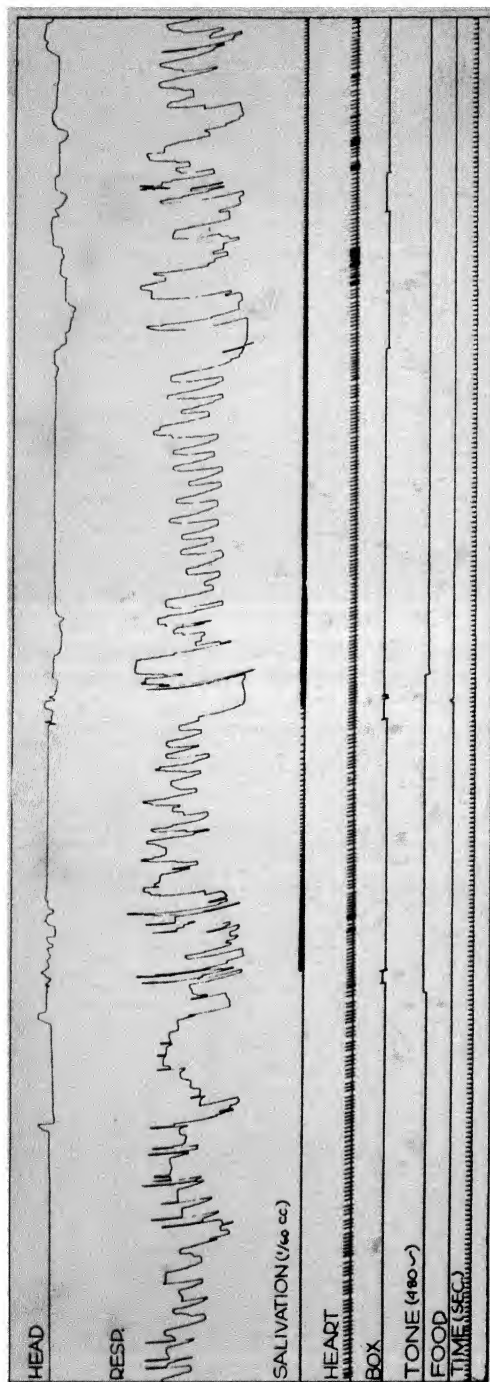 HEAD
RESP.
SALIVATION (1/60 cc)
HEART
BOX
TONE (480~)
FOOD
TIME (SEC.)